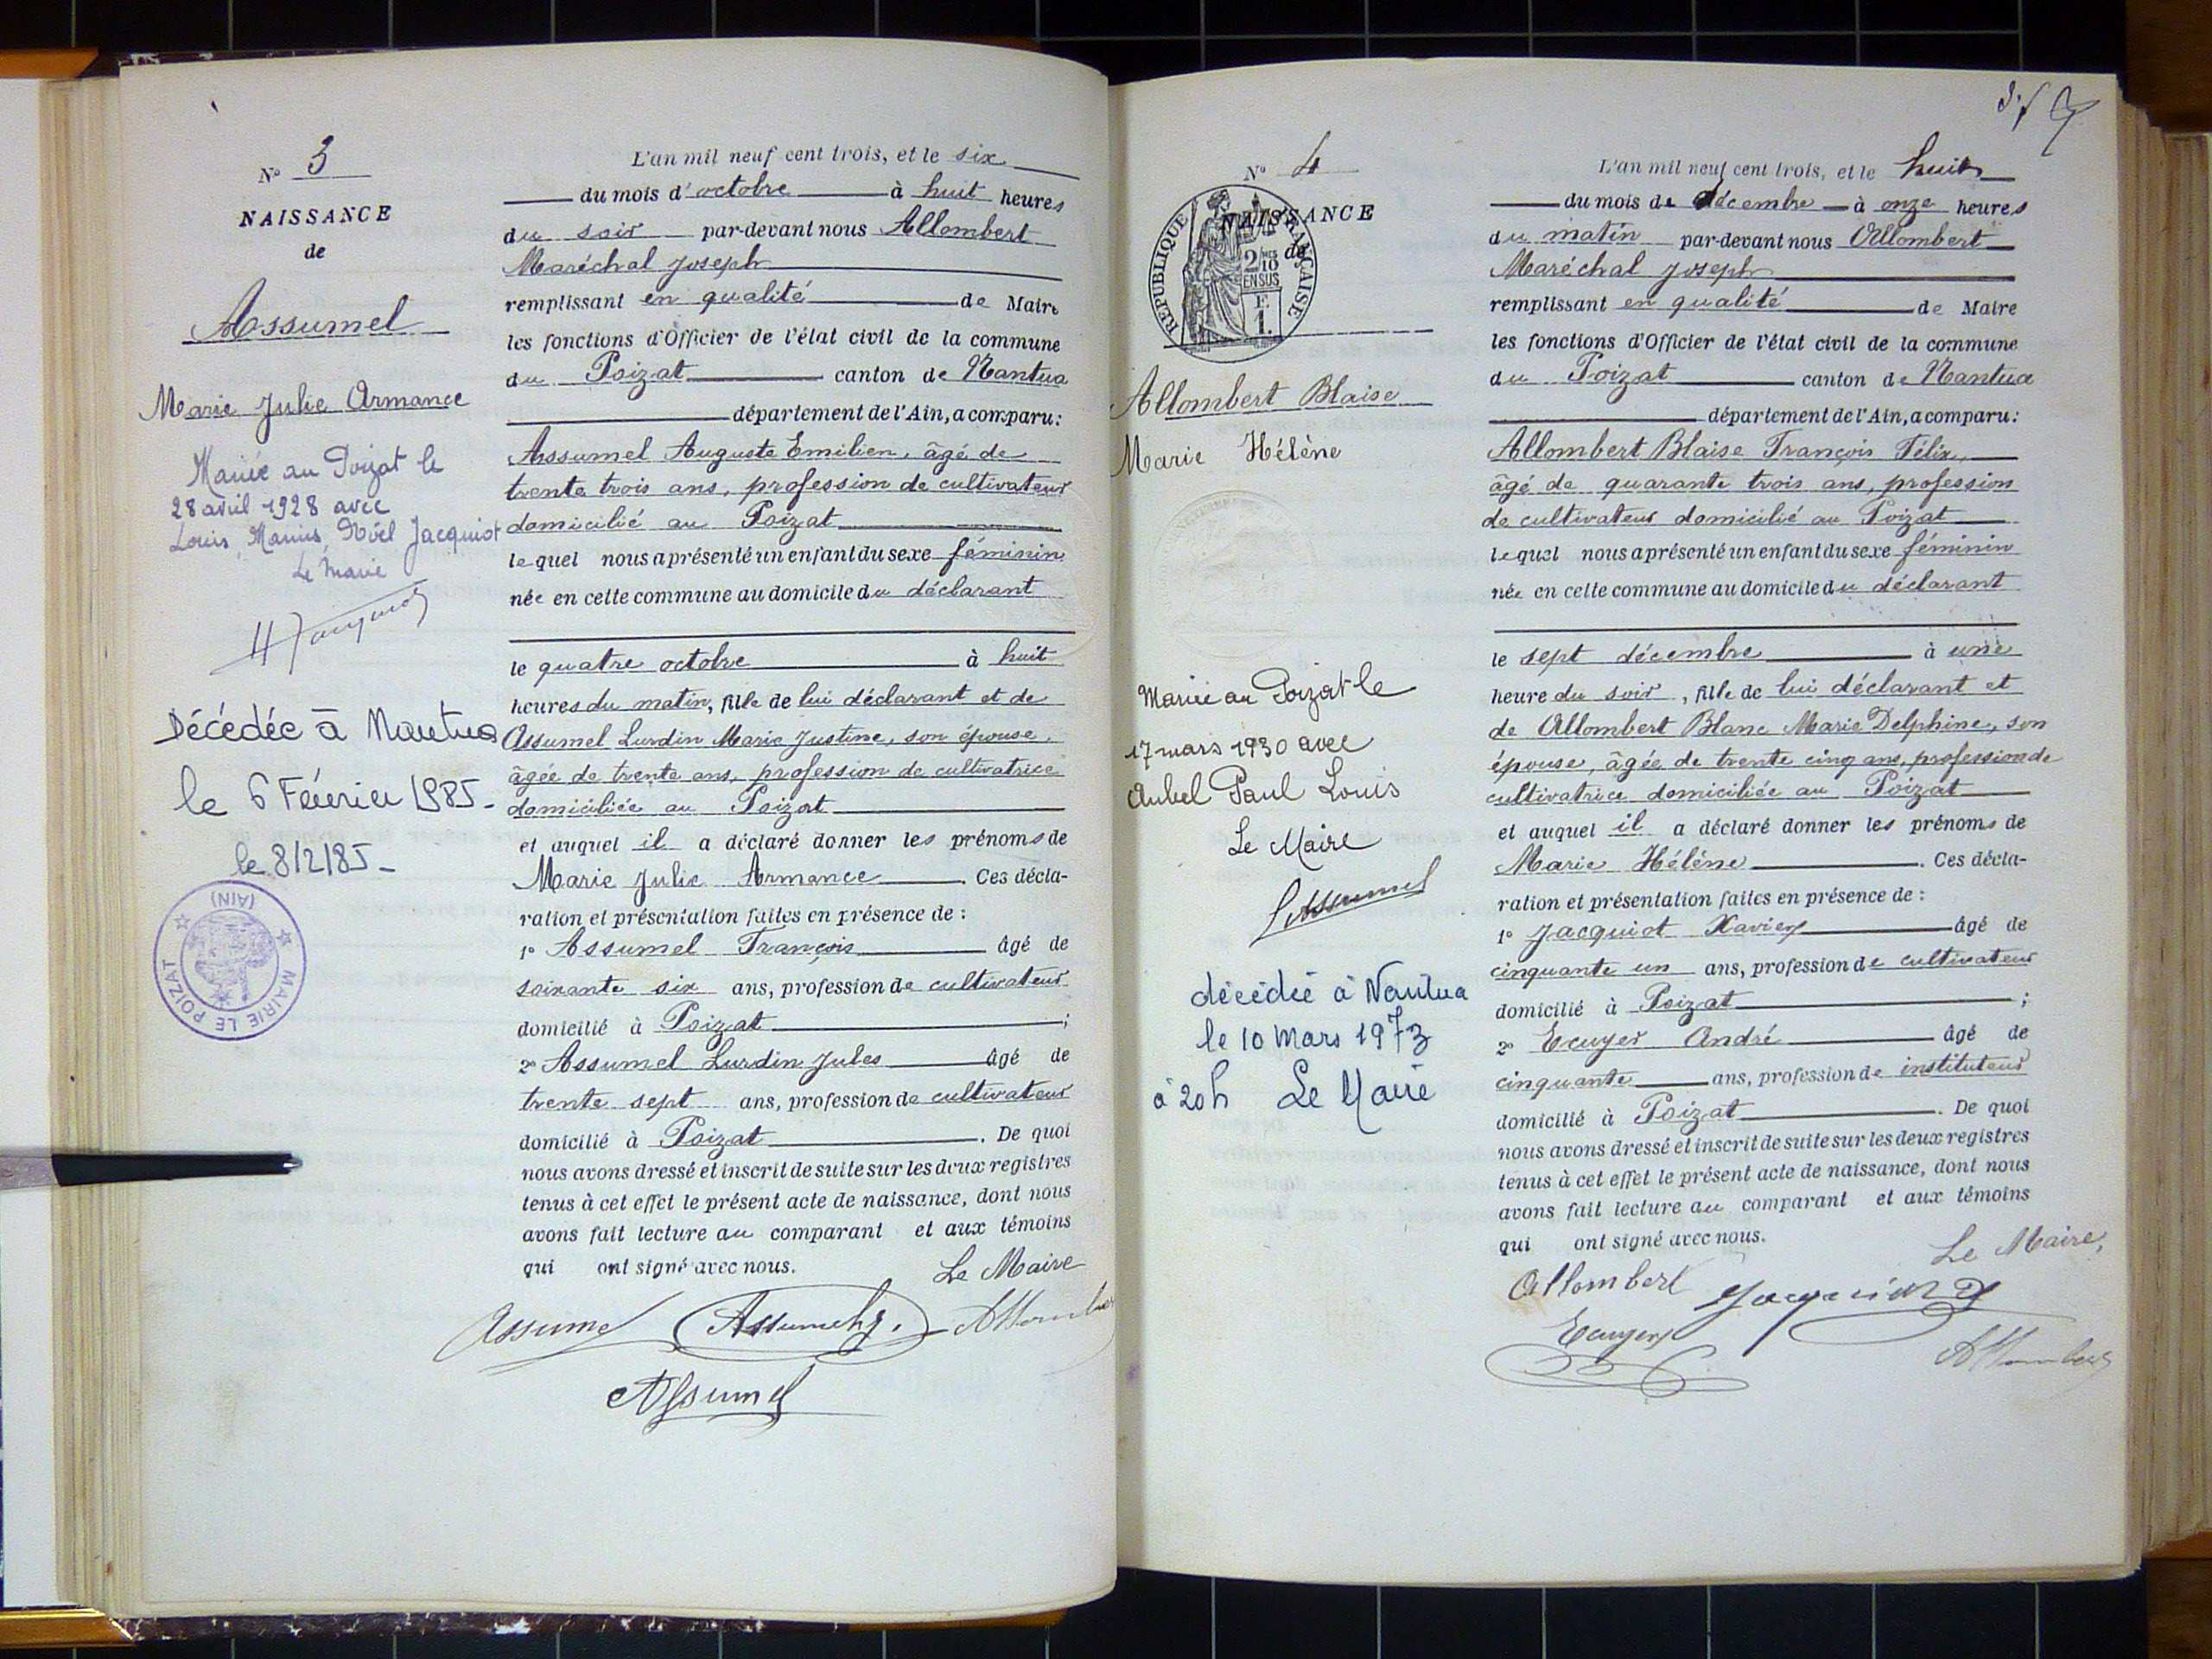 N° 3
NAISSANCE
de
Assumel
Marie Julie Armance
Mariée au Poizat le
28 avril 1928 avec
Louis, Marius, Noël Jacquiot
Le Maire
Décédée à Nantua
le 6 Février 1985-
le 8/2/85-
MAIRIE LE POIZAT
(AIN)
L'an mil neuf cent trois, et le six
du mois d'octobre à huit heures
du soir par-devant nous Allombert
Maréchal Joseph
remplissant en qualité de Maire
les fonctions d'Officier de l'état civil de la commune
du Poizat canton de Nantua
département de l'Ain, a comparu:
Assumel Auguste Emilien, âgé de
trente trois ans, profession de cultivateur
domicilié au Poizat
lequel nous a présenté un enfant du sexe féminin
née en cette commune au domicile du déclarant
le quatre octobre à huit
heures du matin, fille de lui déclarant et de
Assumel Lurdin Marie Justine, son épouse,
âgée de trente ans, profession de cultivatrice
domiciliée au Poizat
et auquel il a déclaré donner les prénoms de
Marie Julie Armance. Ces décla-
ration et présentation faites en présence de :
1° Assumel François âgé de
soixante six ans, profession de cultivateur
domicilié à Poizat ;
2° Assumel Lurdin Jules âgé de
trente sept ans, profession de cultivateur
domicilié à Poizat. De quoi
nous avons dressé et inscrit de suite sur les deux registres
tenus à cet effet le présent acte de naissance, dont nous
avons fait lecture au comparant et aux témoins
qui ont signé avec nous.
Le Maire
Assumel
Assumel
N° 4
NAISSANCE
de
REPUBLIQUE FRANÇAISE
2/10
EN SUS
F.
1.
Allombert Blaise
Marie Hélène
Mariée au Poizat le
17 mars 1930 avec
Aubel Paul Louis
Le Maire
décédée à Nantua
le 10 Mars 1973
à 20h Le Maire
L'an mil neuf cent trois, et le huit
du mois de décembre à onze heures
du matin par-devant nous Allombert
Maréchal Joseph
remplissant en qualité de Maire
les fonctions d'Officier de l'état civil de la commune
du Poizat canton de Nantua
département de l'Ain, a comparu:
Allombert Blaise François Félix,
âgé de quarante trois ans, profession
de cultivateur domicilié au Poizat
lequel nous a présenté un enfant du sexe féminin
née en cette commune au domicile du déclarant
le sept décembre à une
heure du soir, fille de lui déclarant et
de Allombert Blanc Marie Delphine, son
épouse, âgée de trente cinq ans, profession de
cultivatrice domiciliée au Poizat
et auquel il a déclaré donner les prénoms de
Marie Hélène. Ces décla-
ration et présentation faites en présence de :
1° Jacquiot Xavier âgé de
cinquante un ans, profession de cultivateur
domicilié à Poizat ;
2° Ecuyer André âgé de
cinquante ans, profession de instituteur
domicilié à Poizat. De quoi
nous avons dressé et inscrit de suite sur les deux registres
tenus à cet effet le présent acte de naissance, dont nous
avons fait lecture au comparant et aux témoins
qui ont signé avec nous.
Le Maire,
Allombert
Ecuyer